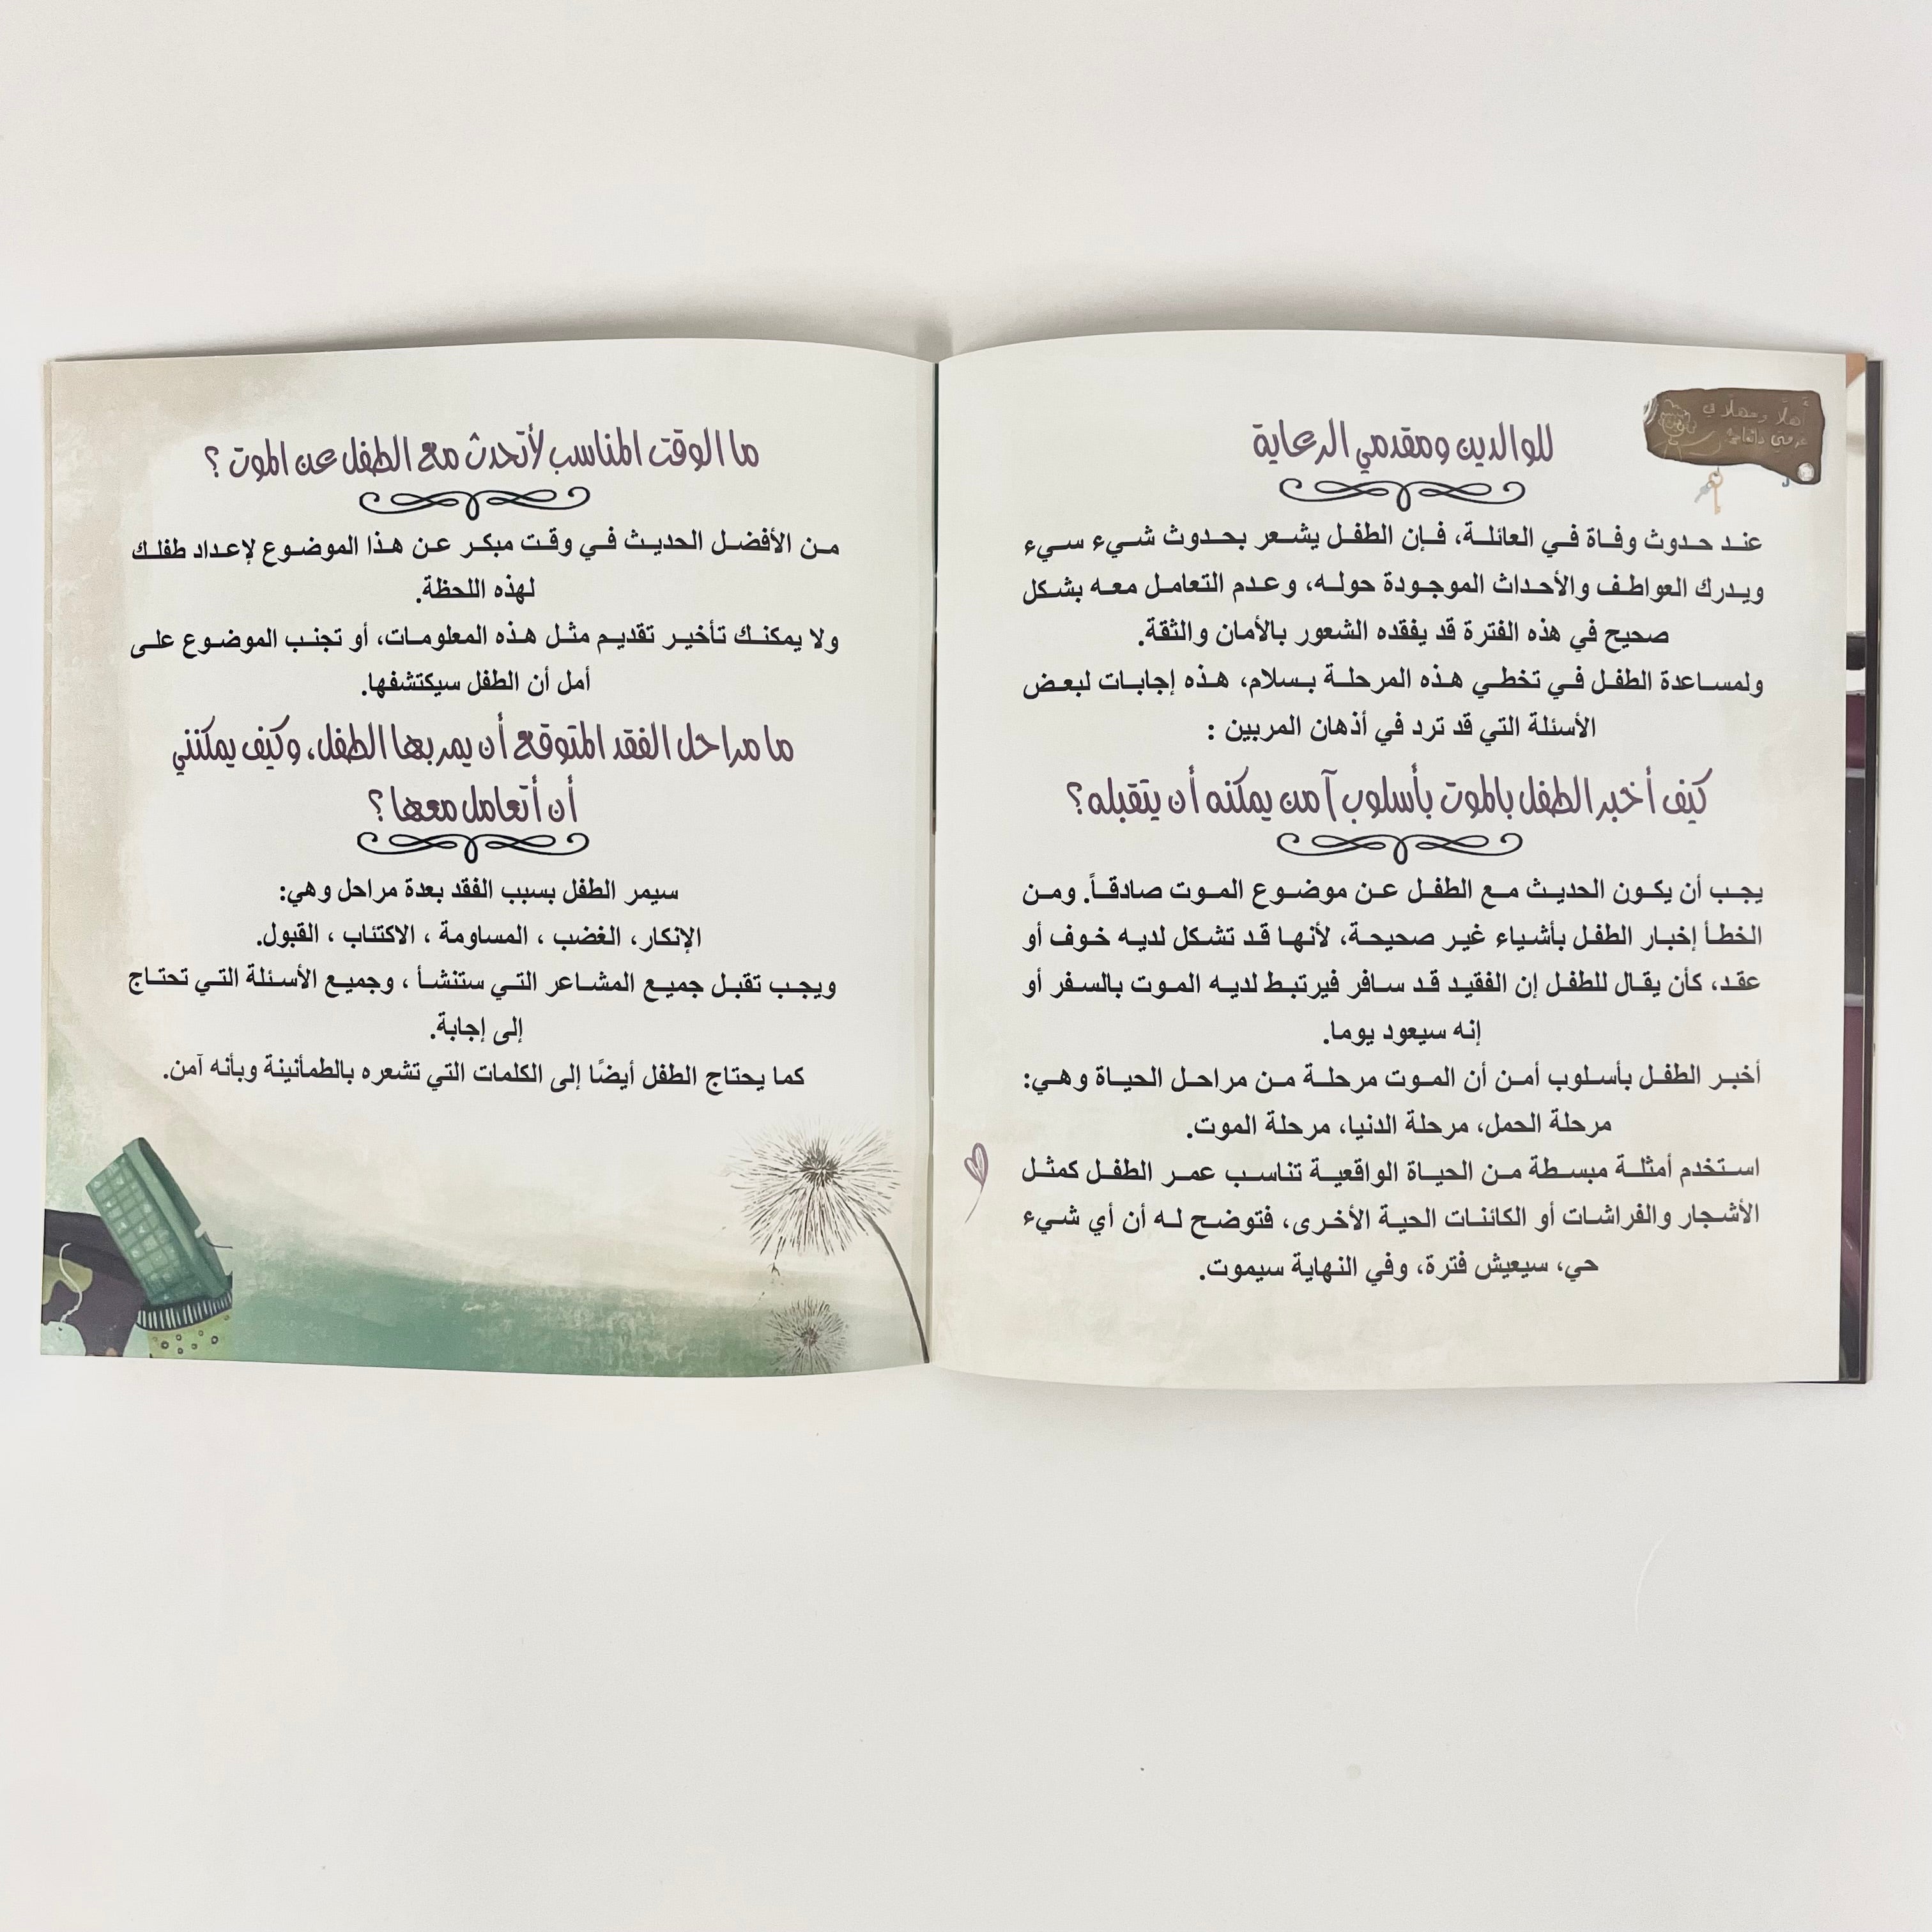 أهلًا وسهلًا في
للوالدين ومقدمي الرعاية
عند حدوث وفاة في العائلة، فإن الطفل يشعر بحدوث شيء سيء
ويدرك العواطف والأحداث الموجودة حوله، وعدم التعامل معه بشكل
صحيح في هذه الفترة قد يفقده الشعور بالأمان والثقة.
ولمساعدة الطفل في تخطي هذه المرحلة بسلام، هذه إجابات لبعض
الأسئلة التي قد ترد في أذهان المربين :
كيف أخبر الطفل بالموت بأسلوب آمن يمكنه أن يتقبله؟
يجب أن يكون الحديث مع الطفل عن موضوع الموت صادقاً. ومن
الخطأ إخبار الطفل بأشياء غير صحيحة، لأنها قد تشكل لديه خوف أو
عقد، كأن يقال للطفل إن الفقيد قد سافر فيرتبط لديه الموت بالسفر أو
إنه سيعود يوما.
أخبر الطفل بأسلوب أمن أن الموت مرحلة من مراحل الحياة وهي:
مرحلة الحمل، مرحلة الدنيا، مرحلة الموت.
استخدم أمثلة مبسطة من الحياة الواقعية تناسب عمر الطفل كمثل
الأشجار والفراشات أو الكائنات الحية الأخرى، فتوضح له أن أي شيء
حي، سيعيش فترة، وفي النهاية سيموت.
ما الوقت المناسب لأتحدث مع الطفل عن الموت ؟
من الأفضل الحديث في وقت مبكر عن هذا الموضوع لإعداد طفلك
لهذه اللحظة.
ولا يمكنك تأخير تقديم مثل هذه المعلومات، أو تجنب الموضوع على
أمل أن الطفل سيكتشفها.
ما مراحل الفقد المتوقع أن يمر بها الطفل، وكيف يمكنني
أن أتعامل معها ؟
سيمر الطفل بسبب الفقد بعدة مراحل وهي:
الإنكار، الغضب ، المساومة ، الاكتئاب ، القبول.
ويجب تقبل جميع المشاعر التي ستنشأ ، وجميع الأسئلة التي تحتاج
إلى إجابة.
كما يحتاج الطفل أيضًا إلى الكلمات التي تشعره بالطمأنينة وبأنه آمن.